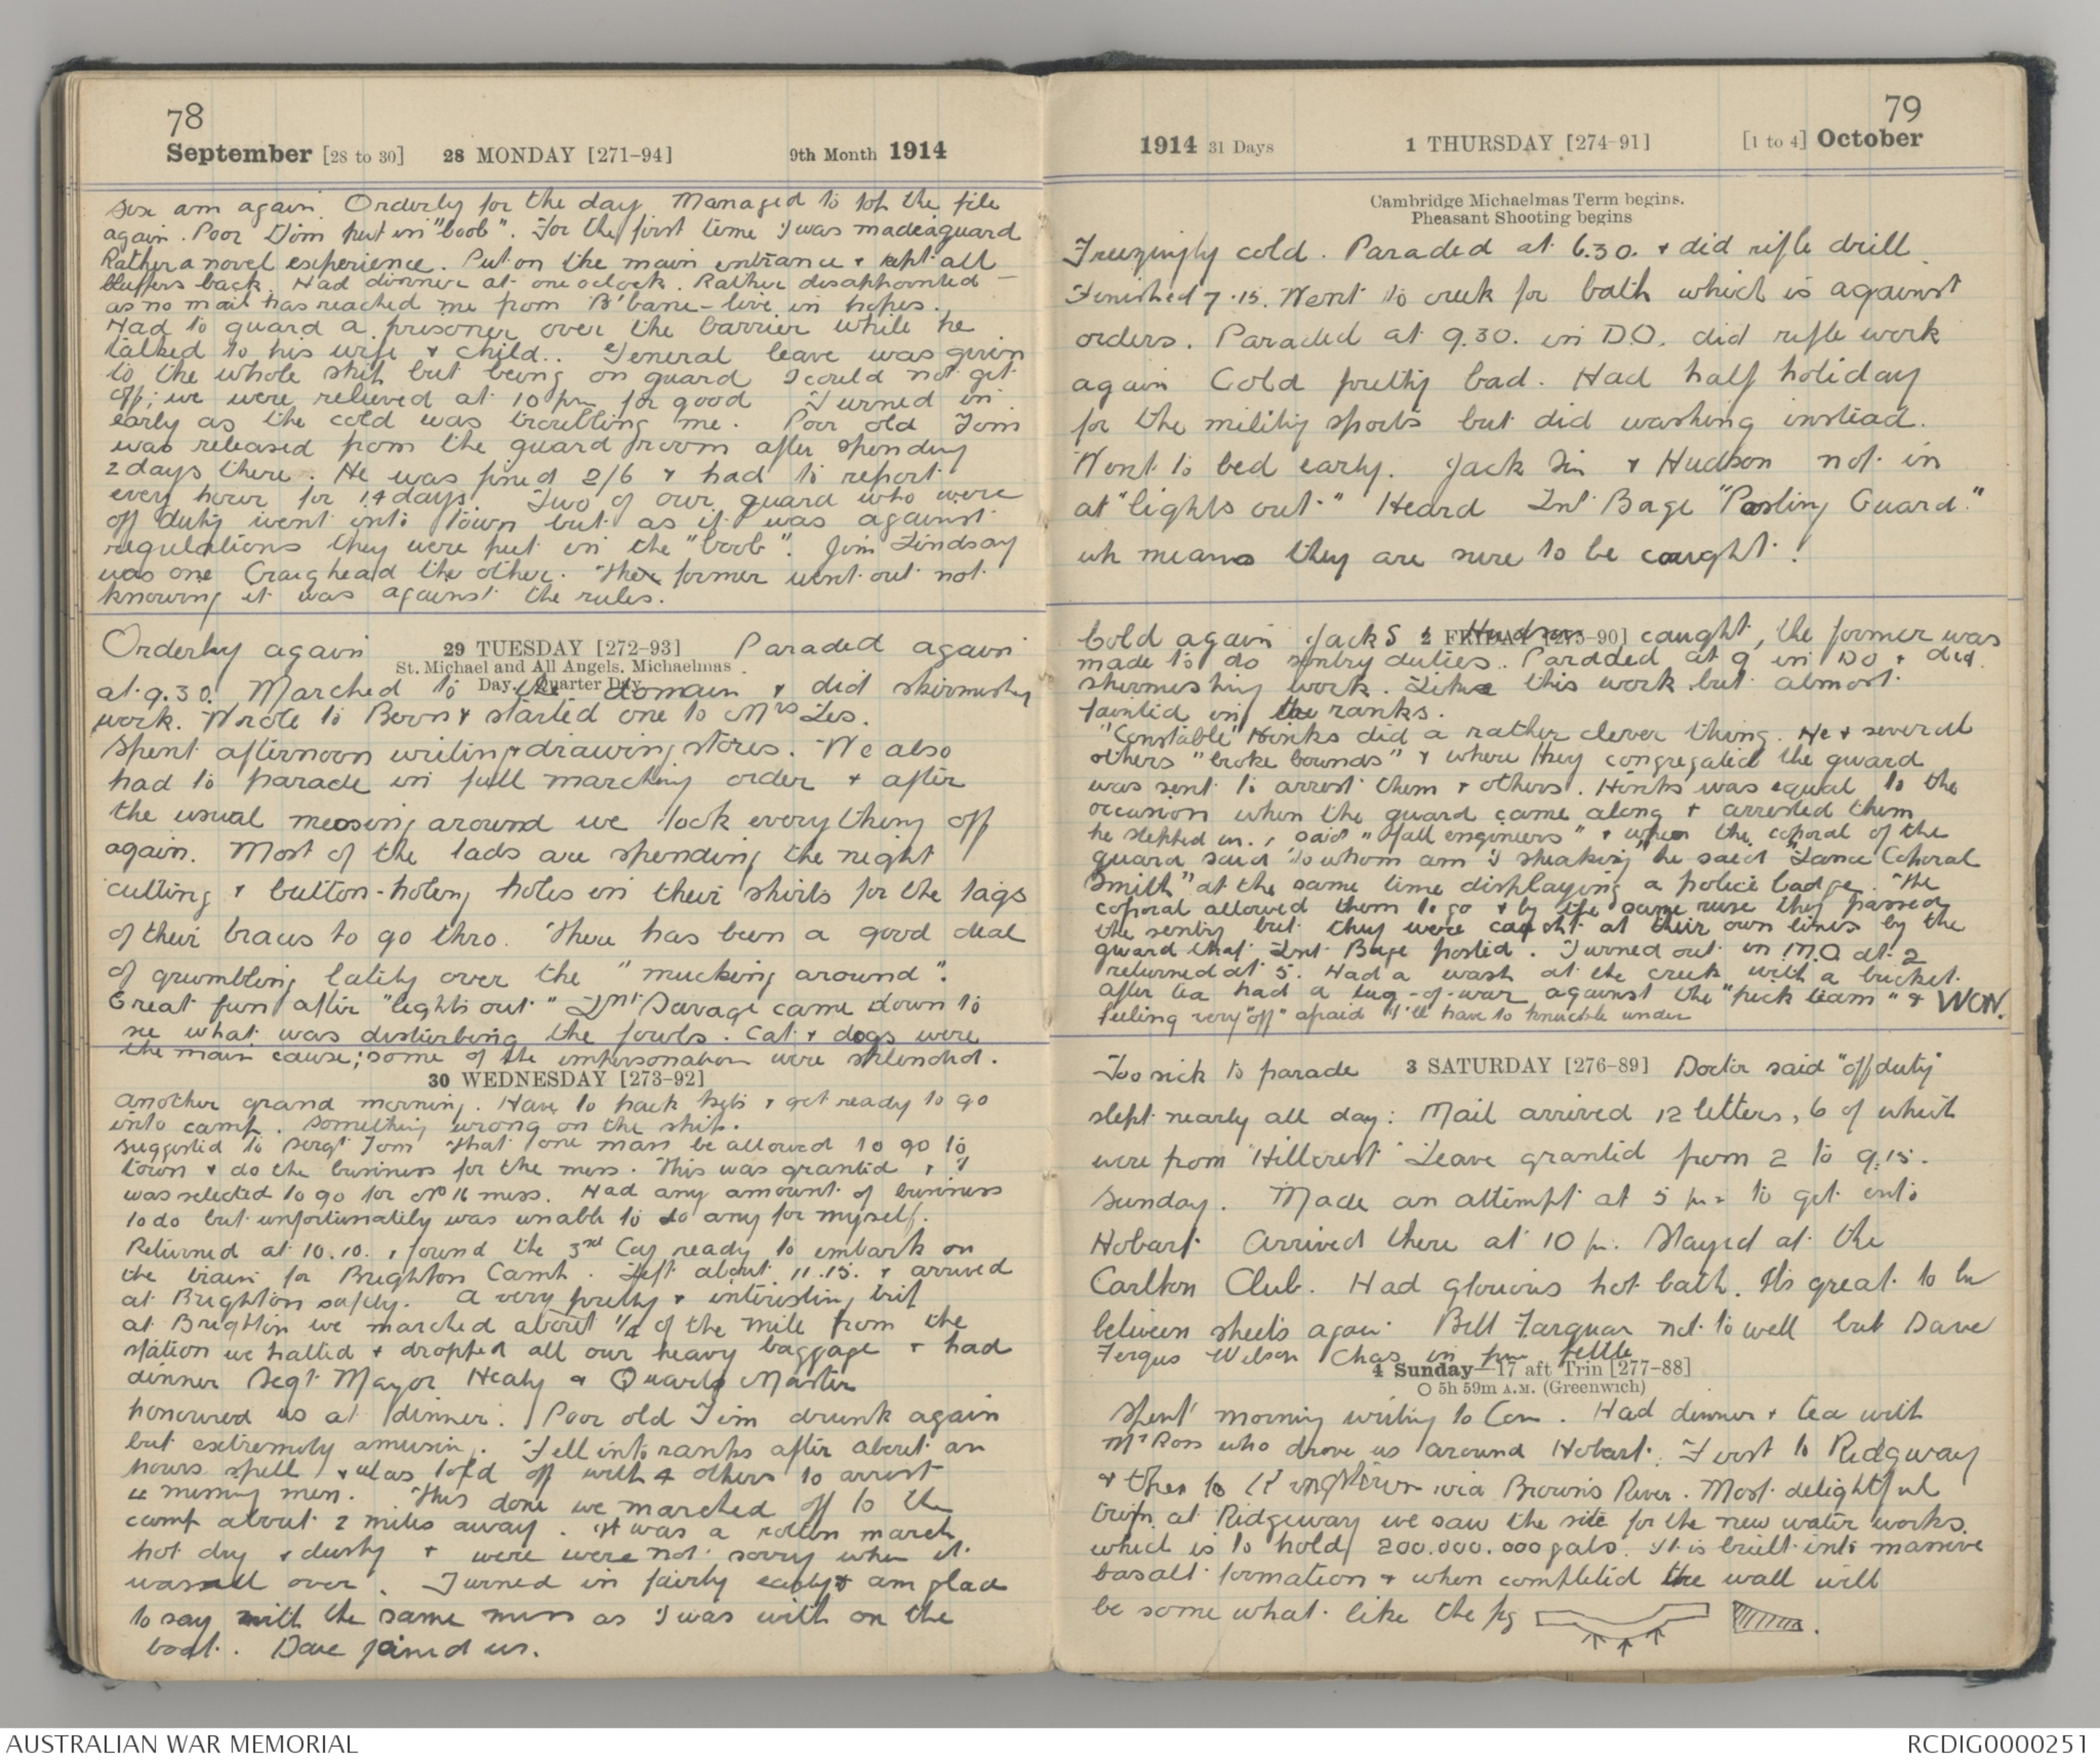 78
September [28 to 30] 28 MONDAY [271-94] 9th Month 1914
six am again. Orderly for the day Managed to top the file
again. Poor Tom put in "boob". For the first time I was made a guard
Rather a novel experience. Put on the main entrance & kept all
bluffers back. Had dinner at one oclock. Rather disappointed —
as no mail has reached me from B'bane - live in hopes.
Had to guard a prisoner over the barrier while he
talked to his wife & child.. General leave was given
to the whole ship but being on guard I could not get
off; we were relieved at 10 pm for good Turned in
early as the cold was troubling me. Poor old Tom
was released from the guard room after spending
2 days there. He was fined 2/6 & had to report
every hour for 14 days. Two of our guard who were
off duty went into town but as it was against
regulations they were put in the "boob". Jim Lindsay
was one Craighead the other. The former went out not
knowing it was against the rules.
Orderly again 29 TUESDAY [272-93] Paraded again
St. Michael and All Angels. Michaelmas
Day. Quarter Day
at 9.30. Marched to the domain & did skirmishing
work. Wrote to Beron & started one to Mrs Les.
Spent afternoon writing & drawing stores. We also
had to parade in full marching order & after
the usual messing around we took everything off
again. Most of the lads are spending the night
cutting & button-holing holes in their shirts for the tags
of their braces to go thro. There has been a good deal
of grumbling lately over the "mucking around".
Great fun after "lights out" Lnt Savage came down to
see what was disturbing the fowls. Cat & dogs were
the main cause; some of the impersonation were splendid.
30 WEDNESDAY [273-92]
Another grand morning. Have to pack kits & get ready to go
into camp. Something wrong on the ship.
suggested to Sergt Tom that one man be allowed to go to
town & do the business for the mess. This was granted & I
was selected to go for No 16 mess. Had any amount of business
to do but unfortunately was unable to do any for myself.
Returned at 10.10. & found the 3rd Coy ready to embark on
the train for Brighton Camp. Left about 11.15. & arrived
at Brighton safely. A very pretty & interesting trip
at Brighton we marched about 1/4 of the mile from the
station we halted & dropped all our heavy baggage & had
dinner Segt Mayor Healy & Quarter Master
honoured us at dinner. Poor old Tim drunk again
but extremely amusing. Fell into ranks after about an
hours spell & was told off with 4 others to arrest
missing men. This done we marched off to the
camp about 2 miles away. It was a rotten march
hot dry & dusty & were were not sorry when it
was all over. Turned in fairly early & am glad
to say with the same mess as I was with on the
boat. Dave joined us.
79
1914 31 Days 1 THURSDAY [274-91] [1 to 4] October
Cambridge Michaelmas Term begins.
Pheasant Shooting begins
Freezingly cold. Paraded at 6.30. & did rifle drill.
Finished 7.15. Went to creek for bath which is against
orders. Paraded at 9.30. in D.O. did rifle work
again Cold pretty bad. Had half holiday
for the military sports but did washing instead.
Went to bed early. Jack Sin & Hudson not in
at "lights out" Heard Lnt Bage "Posting Guard."
wh means they are sure to be caught!
Cold again Jack S & Hudson 2 FRIDAY [275-90] caught, the former was
made to do sentry duties. Paraded at 9 in DO & did
skirmishing work. Like this work but almost
fainted in the ranks.
"Constable" Hinks did a rather clever thing. He & several
others "broke bounds" & where they congregated the guard
was sent to arrest them & others. Hinks was equal to the
occasion when the guard came along & arrested them
he stepped in & said "fall engineers" & when the coporal of the
guard said "to whom am I speaking" he said "Lance Coporal
Smith" at the same time displaying a police badge. The
coporal allowed them to go & by the same ruse they passed
the sentry but they were caught at their own lines by the
guard that Lnt Bage posted. Turned out in M.O. at 2
returned at 5. Had a wash at the creek with a bucket.
after tea had a tug-of-war against the "pick team" & WON.
feeling very "off" afraid I'll have to knuckle under
Too sick to parade 3 SATURDAY [276-89] Doctor said "off duty"
slept nearly all day: Mail arrived 12 letters, 6 of which
were from "Hillcrest" Leave granted from 2 to 9.15.
Sunday. Made an attempt at 5 pm to get into
Hobart Arrived there at 10 p. Stayed at the
Carlton Club. Had glorious hot bath. Its great to be
between sheets again Bill Farquar not to well but Dave
Fergus Wilson Chas in fine fettle
4 Sunday—17 aft Trin [277-88]
O 5h 59m A.M. (Greenwich)
Spent morning writing to Con. Had dinner & tea with
Mr Ross who drove us around Hobart. First to Ridgway
& then to Kingston via Browns River. Most delightful
trip. at Ridgeway we saw the site for the new water works
which is to hold 200.000.000 gals. It is built into massive
basalt formation & when completed the wall will
be some what like the fig
AUSTRALIAN WAR MEMORIAL
RCDIG0000251